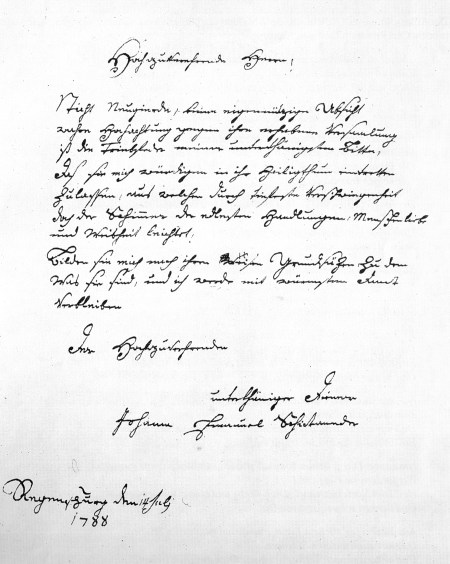 Hochzuverehrende Herrn!
Nicht Neugierde, keine eigennützige Absicht
wahre Hochachtung gegen ihre erhabene Versamlung
ist die Triebfeder meiner unterthänigsten Bitte,
das sie mich würdigen in ihr Heiligthum eintretten
zulassen, aus welchen durch tiefester Verschwiegenheit
doch der Schimmer der edlesten Handlungen, Menschenlieb
und Weisheit leichtet.
Bilden sie mich nach ihren Weisen Grundsätzen zu dem
Was sie sind, und ich werde mit wärmsten
Verbleiben
Der Hochzuverehrenden
unterthäniger Diener
Johann Emanuel Schickaneder
Regenspurg den 14 Julj
1788